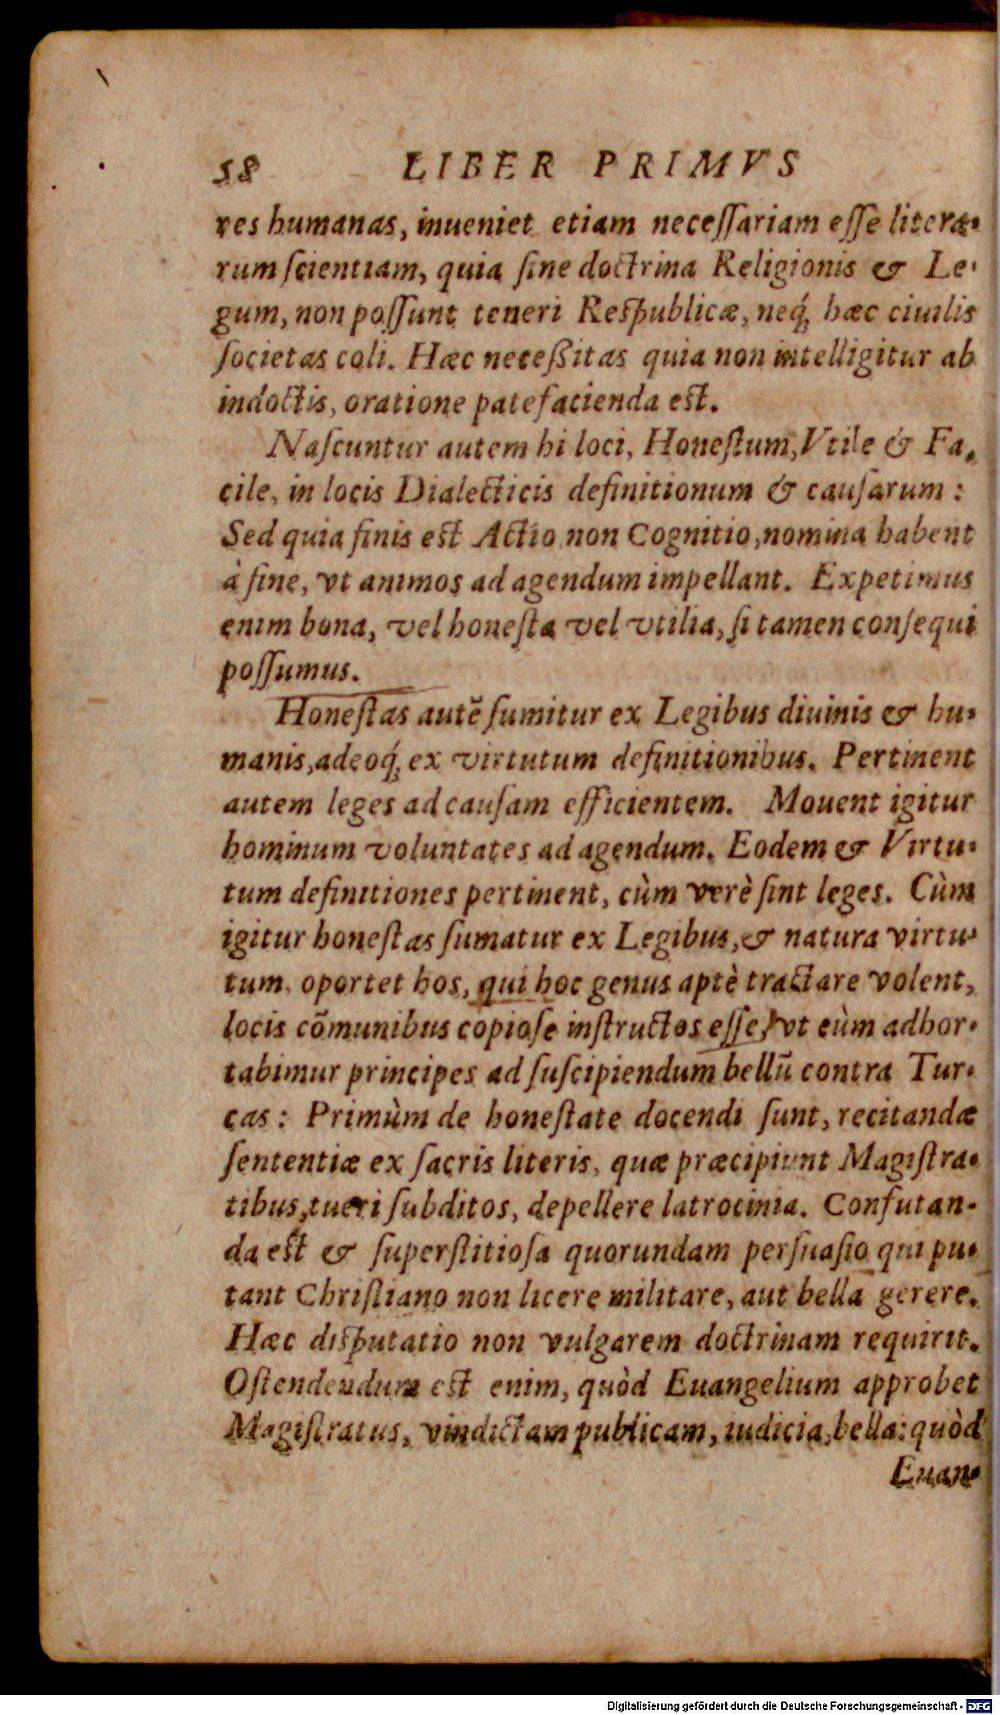 58 LIBER PRIMVS
res humanas, inueniet etiam neceſſariam eſſe litera-
rum ſcientiam, quia ſine doctrina Religionis & Le-
gum, non poſſunt teneri Reſpublicæ, neq́; hæc ciuilis
ſocietas coli. Hæc neceßitas quia non intelligitur ab
indoctis, oratione patefacienda eſt.
Naſcuntur autem hi loci, Honeſtum, Vtile & Fa-
cile, in locis Dialecticis definitionum & cauſarum:
Sed quia finis eſt Actio non Cognitio, nomina habent
à fine, vt animos ad agendum impellant. Expetimus
enim bona, vel honeſta vel vtilia, ſi tamen conſequi
poſſumus.
Honeſtas autẽ ſumitur ex Legibus diuinis & hu-
manis, adeoq́; ex virtutum definitionibus. Pertinent
autem leges ad cauſam efficientem. Mouent igitur
hominum voluntates ad agendum. Eodem & Virtu-
tum definitiones pertinent, cùm verè ſint leges. Cùm
igitur honeſtas ſumatur ex Legibus, & natura virtu-
tum, oportet hos, qui hoc genus aptè tractare volent,
locis cõmunibus copioſe inſtructos eſſe, vt cùm adhor-
tabimur principes ad ſuſcipiendum bellũ contra Tur-
cas: Primùm de honeſtate docendi ſunt, recitandæ
ſententiæ ex ſacris literis, quæ præcipiunt Magiſtra-
tibus, tueri ſubditos, depellere latrocinia. Confutan-
da eſt & ſuperſtitioſa quorundam perſuaſio qui pu-
tant Chriſtiano non licere militare, aut bella gerere.
Hæc diſputatio non vulgarem doctrinam requirit.
Oſtendendum eſt enim, quòd Euangelium approbet
Magiſtratus, vindictam publicam, iudicia, bella: quòd
Euan-
Digitalisierung gefördert durch die Deutsche Forschungsgemeinschaft - DFG